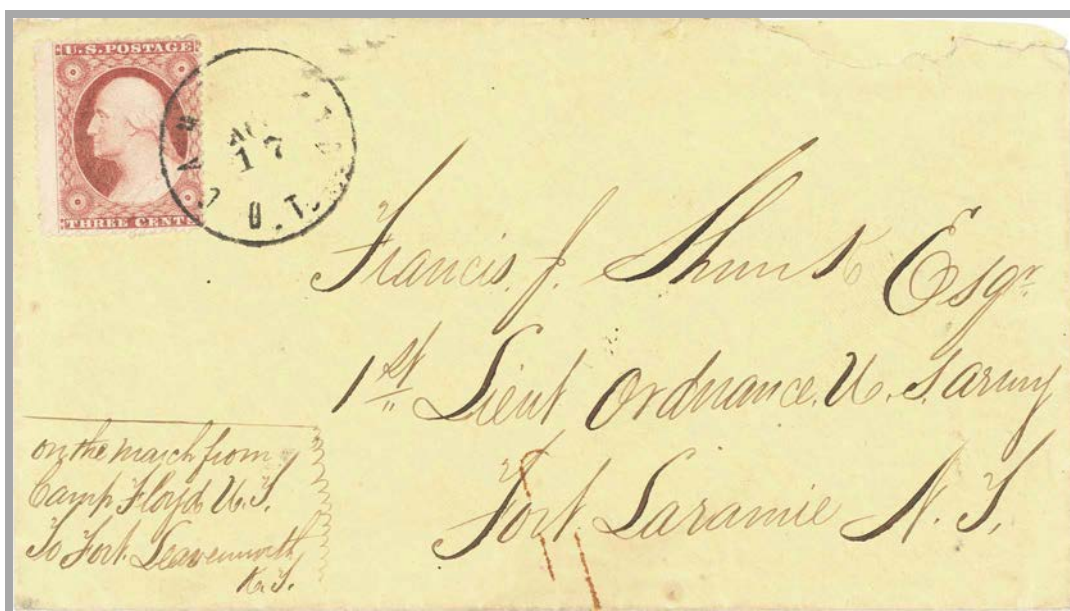 U.S. POSTAGE
THREE CENTS
17
U.T.
Francis. J. Shunk Esqr.
1st Lieut Ordnance. U. S. army
Fort. Laramie N. T.
on the march from
Camp Floyd U. T.
To Fort. Leavenworth
K. T.